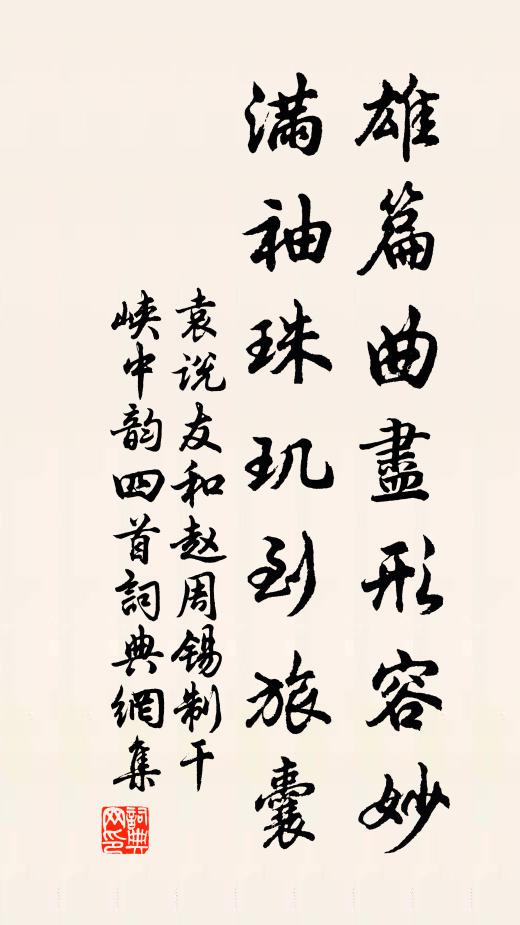 雄篇曲盡形容妙
滿袖珠玑到旅囊
袁说友和赵周锡制干
峡中韵四首詞典網集
詞典网印